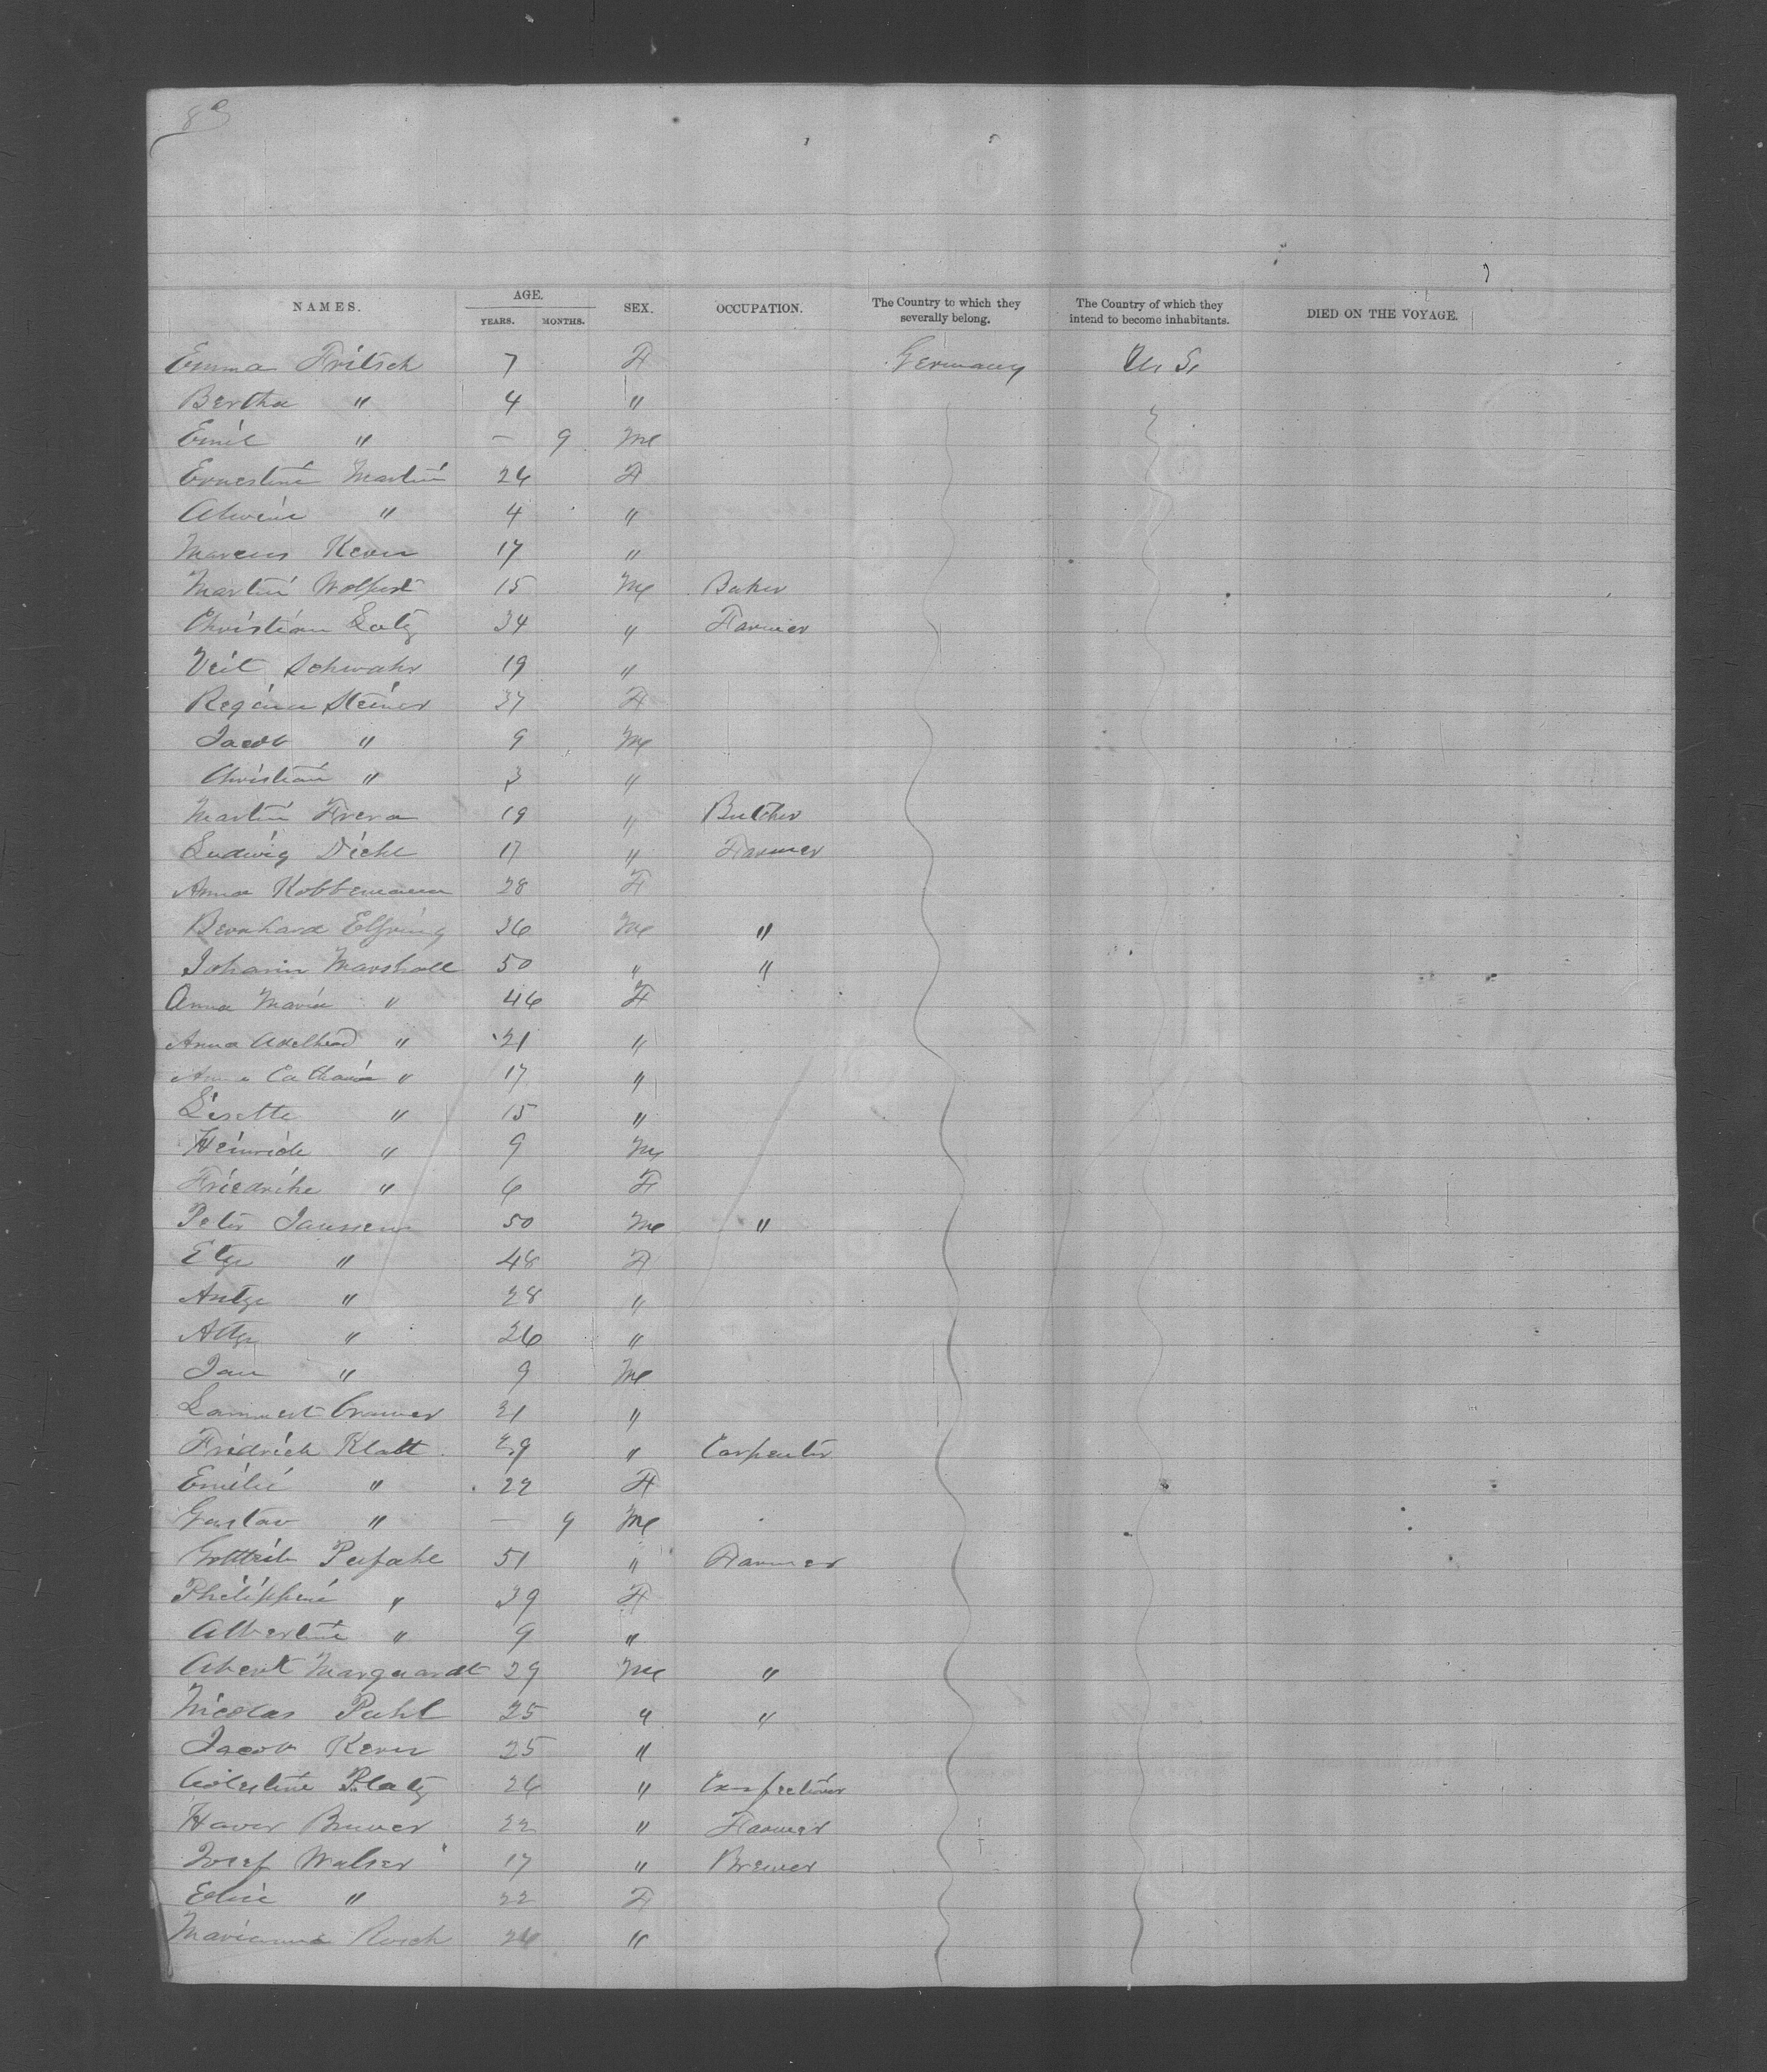 NAMES. AGE. YEARS. MONTHS. SEX. OCCUPATION. The Country to which they severally belong. The Country of which they intend to become inhabitants. DIED ON THE VOYAGE.
Emma Fritsch 7 F Germany U. S.
Bertha " 4 "
Emil " — 9 M
Ernestine Martin 26 F
Alwine " 4 "
Marcus Kern 17 "
Martin Wolpert 15 M Baker
Christian Lutz 34 " Farmer
Veit Schwahr 19 "
Regina Steiner 37 F
Jacob " 9 M
Christian " 3 "
Martin Frera 19 " Butcher
Ludwig Diehl 17 " Farmer
Anna Kobbemann 28 F
Bernhard Elfring 36 M "
Johann Marshall 50 " "
Anna Maria " 46 F
Anna Adelheid " 21 "
Anna Catharin " 17 "
Lisette " 15 "
Heinrich " 9 M
Friedrike " 6 F
Peter Janssen 50 M "
Etje " 48 F
Antje " 28 "
Altje " 26 "
Jan " 9 M
Lammert Cramer 31 "
Fridrich Klatt 29 " Carpenter
Emilie " 22 F
Gustav " — 9 M
Gottlieb Pufahl 51 " Farmer
Philippine " 39 F
Albertine " 9 "
Albert Marquardt 29 M "
Nicolas Puhl 25 " "
Jacob Kern 25 "
Cölestine Platz 26 "
Xaver Bruner 22 " Farmer
Josef Walser 17 " Brewer
" 22 F
Marianna Rosch 26 "